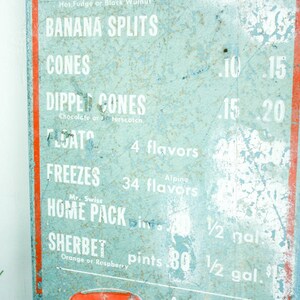 Hot Fudge or Black Walnut
BANANA SPLITS
CONES .10 .15
DIPPED CONES .15 .20
Chocolate or Butterscotch
FLOATS 4 flavors
FREEZES 34 flavors
Alpine
Mr. Swiss
HOME PACK pints 1/2 gal.
SHERBET pints .80 1/2 gal. $1
Orange or Raspberry